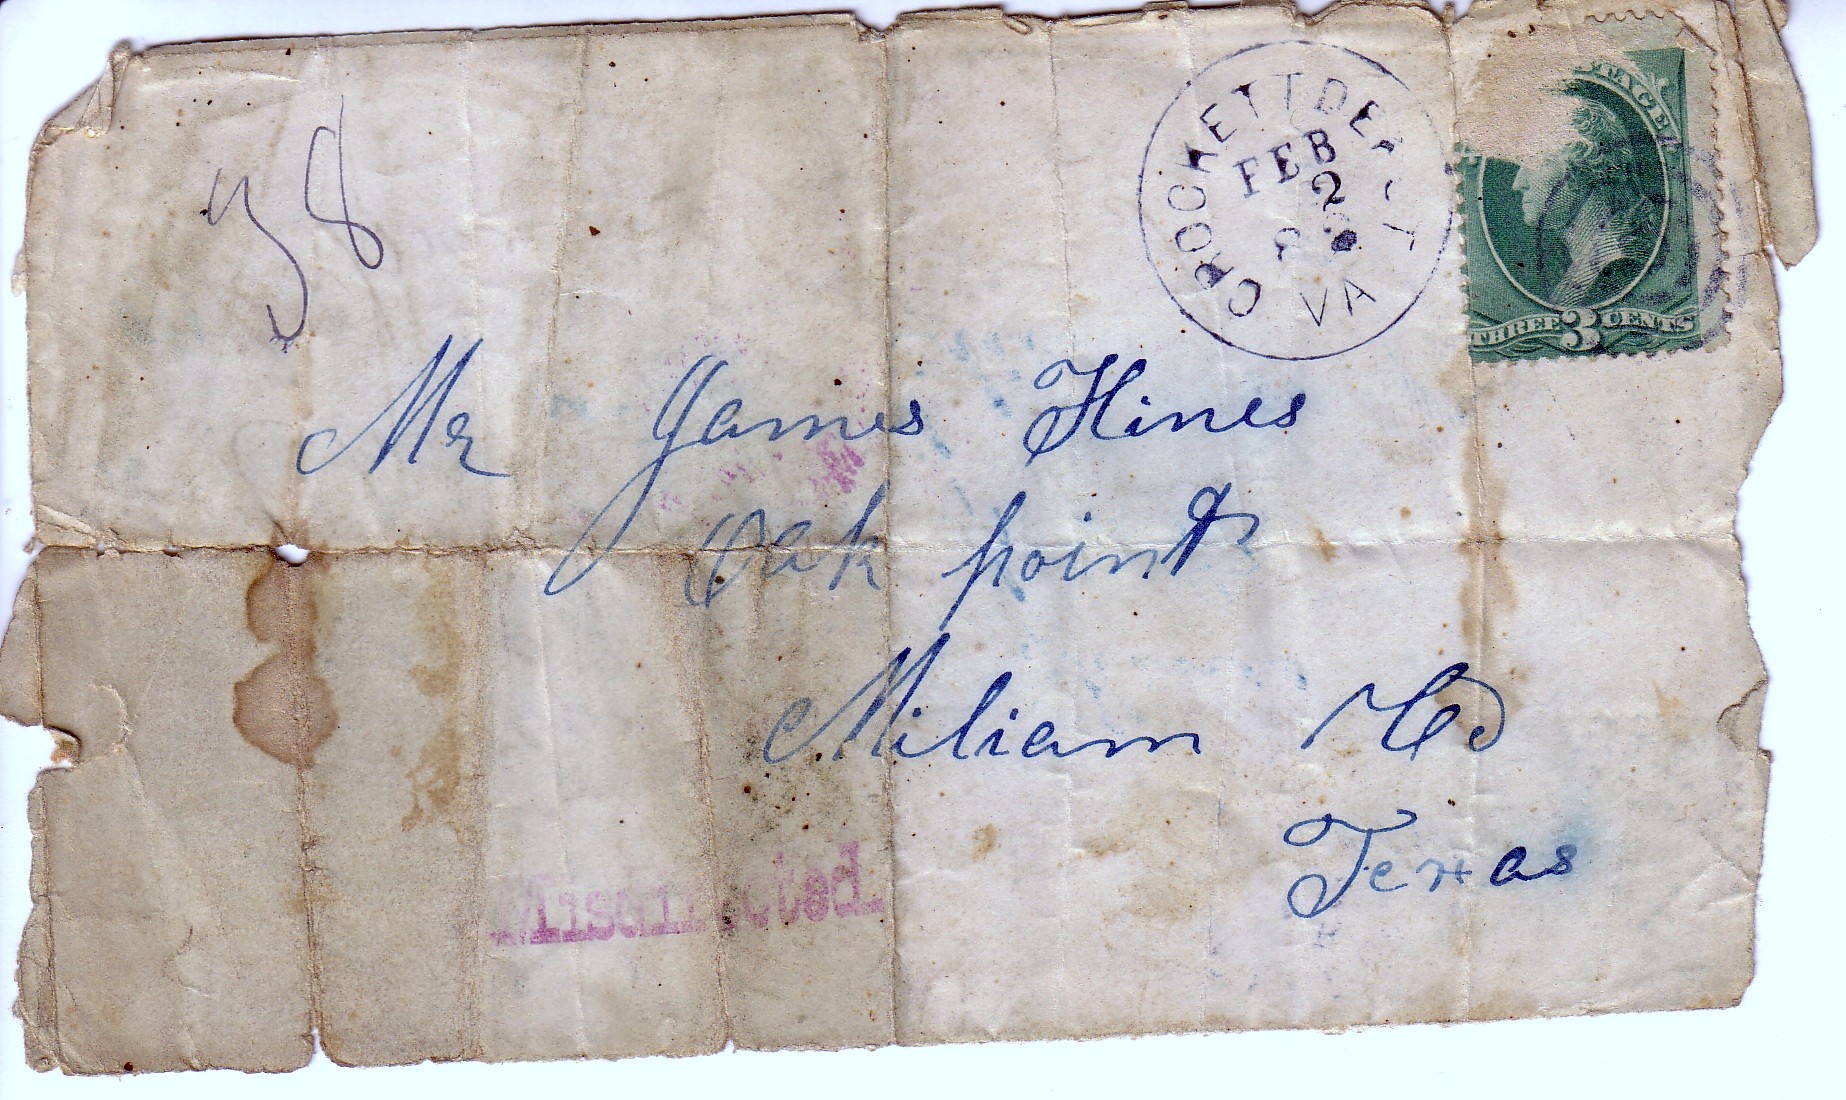 38
CROCKETT DEPOT
FEB
2
VA
THREE 3 CENTS
Mr James Hines
Oak point
Miliam Co
Texas